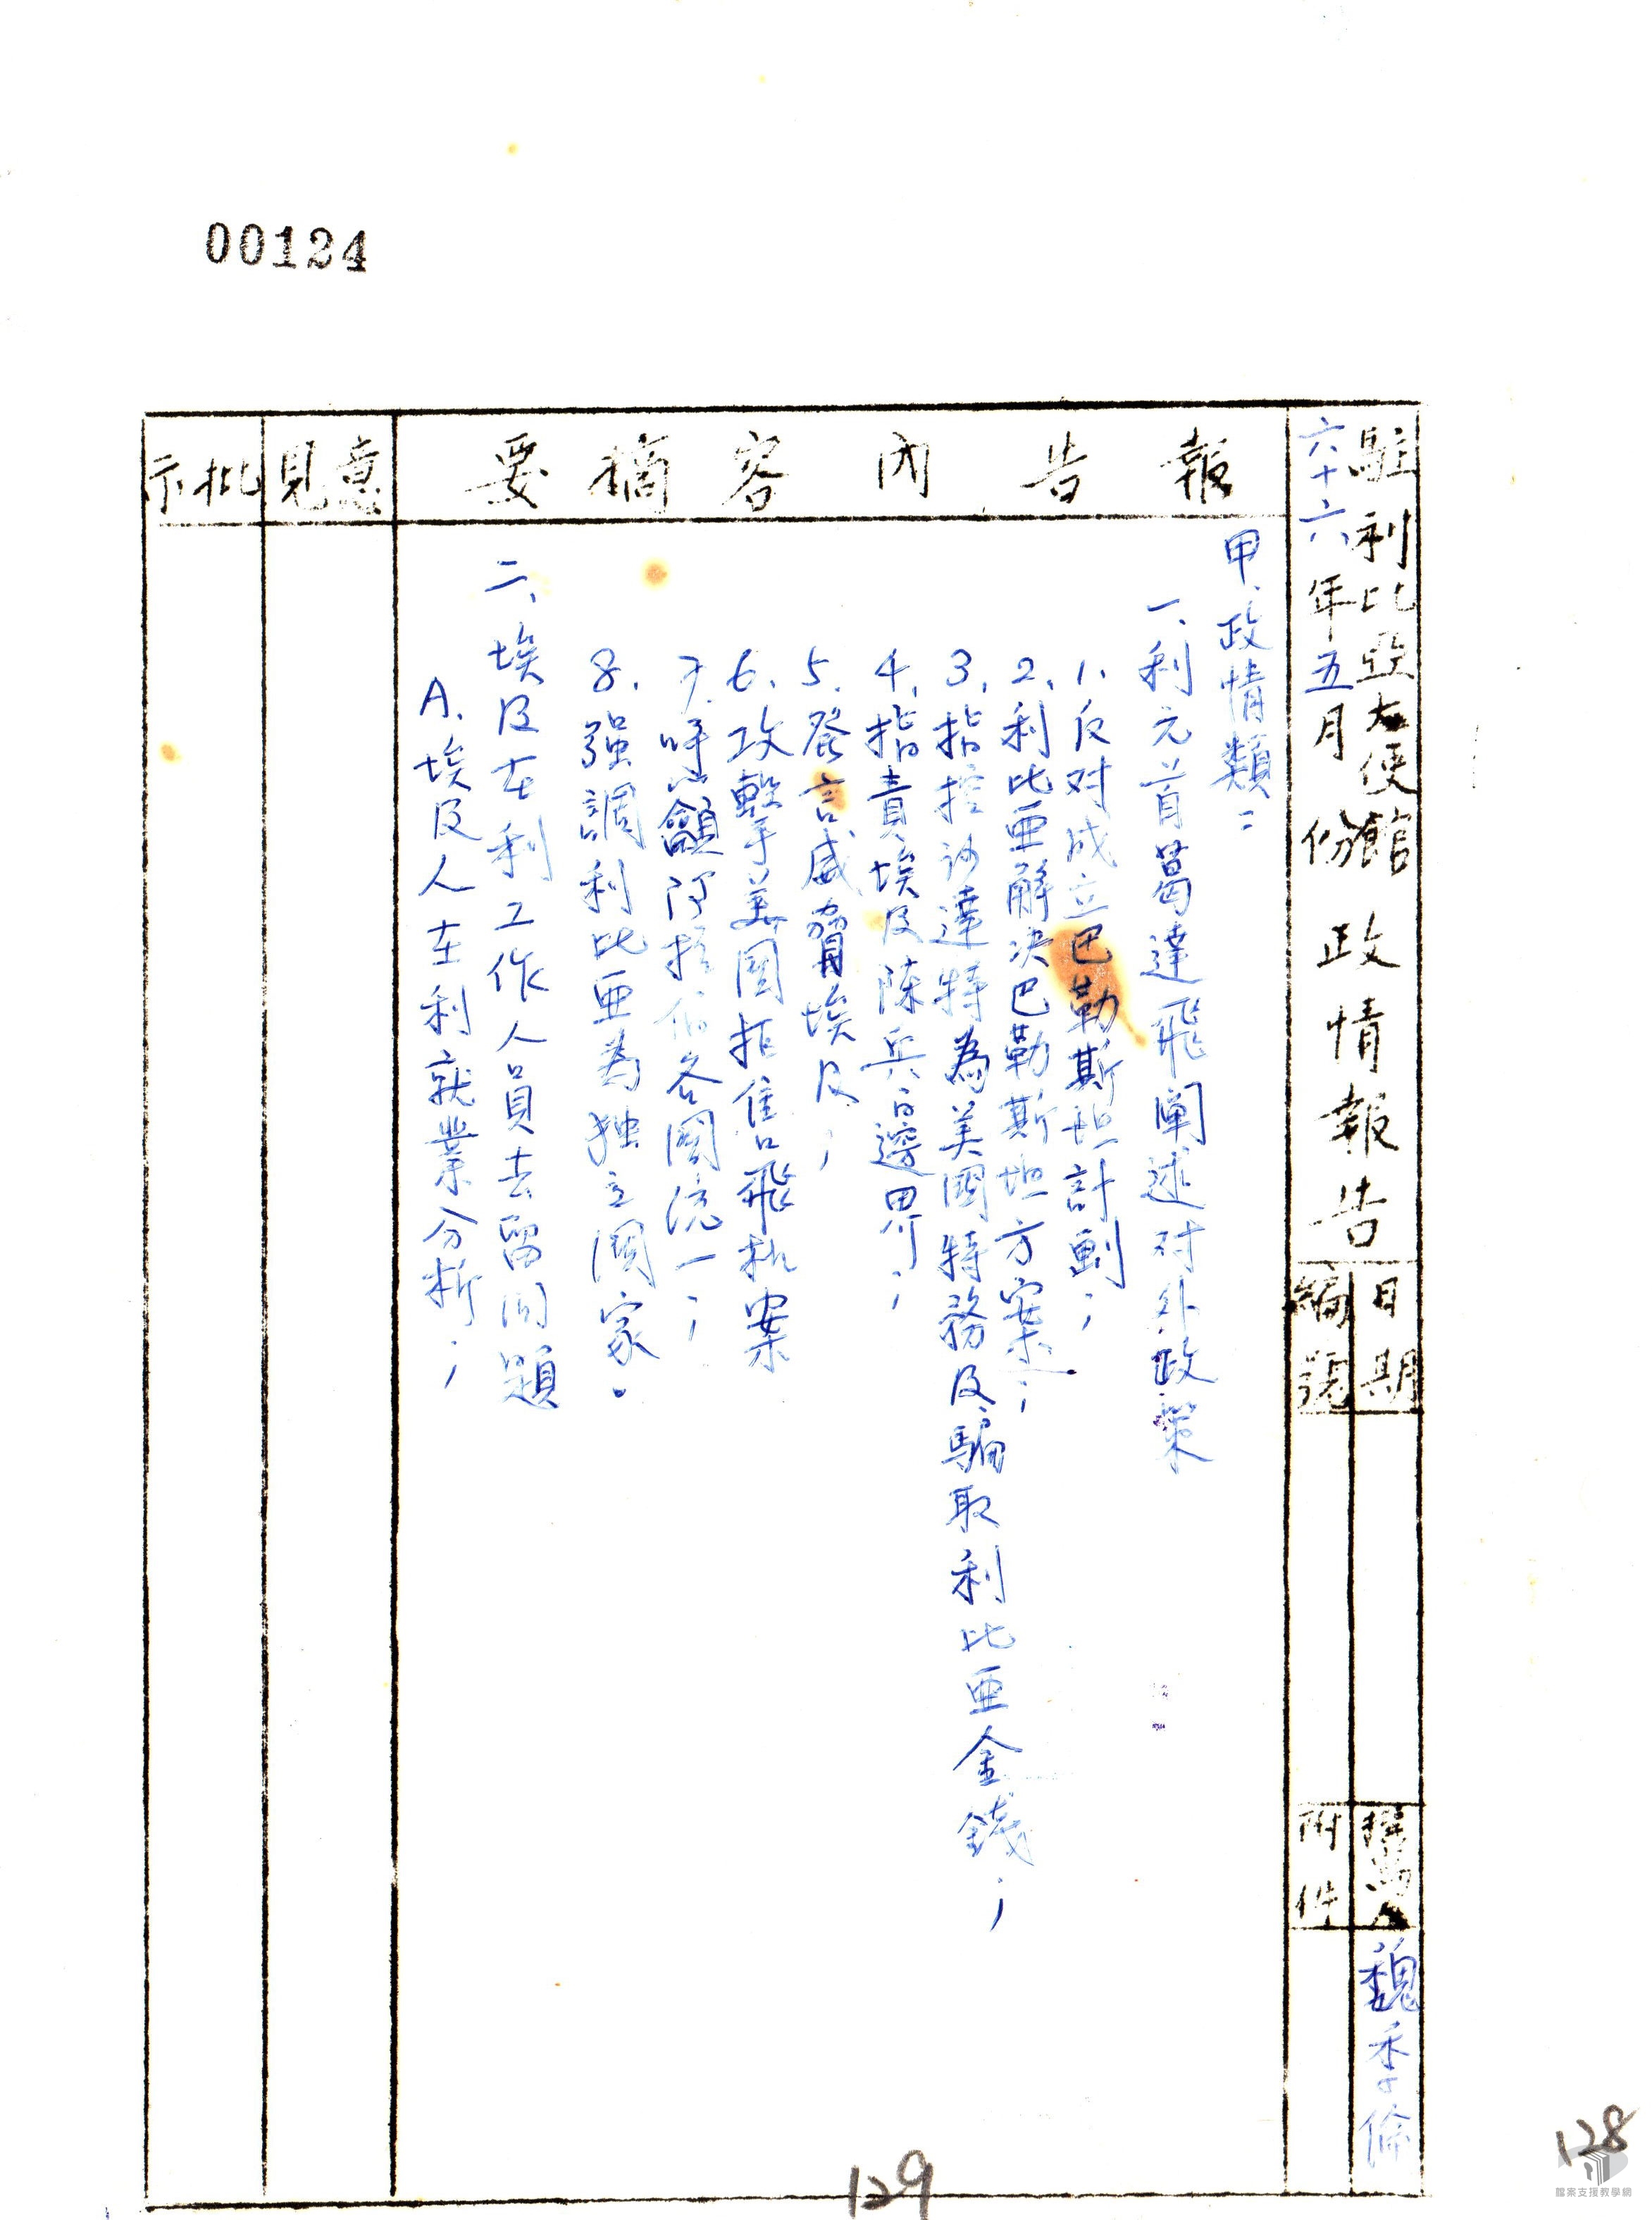 00124
駐利比亞大使館
六十六年五月份
政情報告
日期
編號
撰寫人
魏季倫
附件
報告內容摘要
意見
批示
甲、政情類:
一、利元首葛達飛闡述对外政策
1.反对成立巴勒斯坦計劃;
2.利比亜解決巴勒斯坦方案;
3.指控沙達特為美國特務及騙取利比亜金錢;
4.指責埃及陳兵邊界;
5.發言威脅埃及;
6.攻擊美國拒售飛机案
7.呼籲阿拉伯各國統一;
8.强調利比亜為独立國家。
二、埃及在利工作人員去留问題
A.埃及人在利就業分析;
129
128
檔案支援教學網